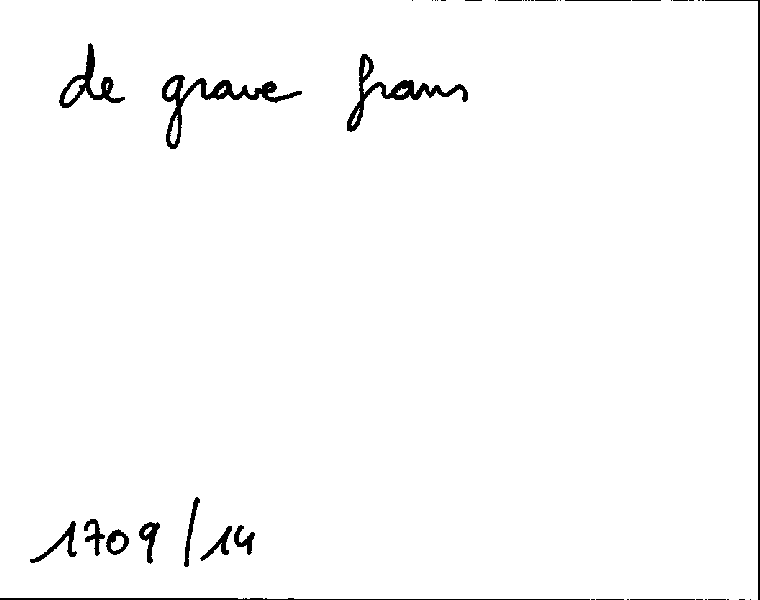 de grave frans
1709/14